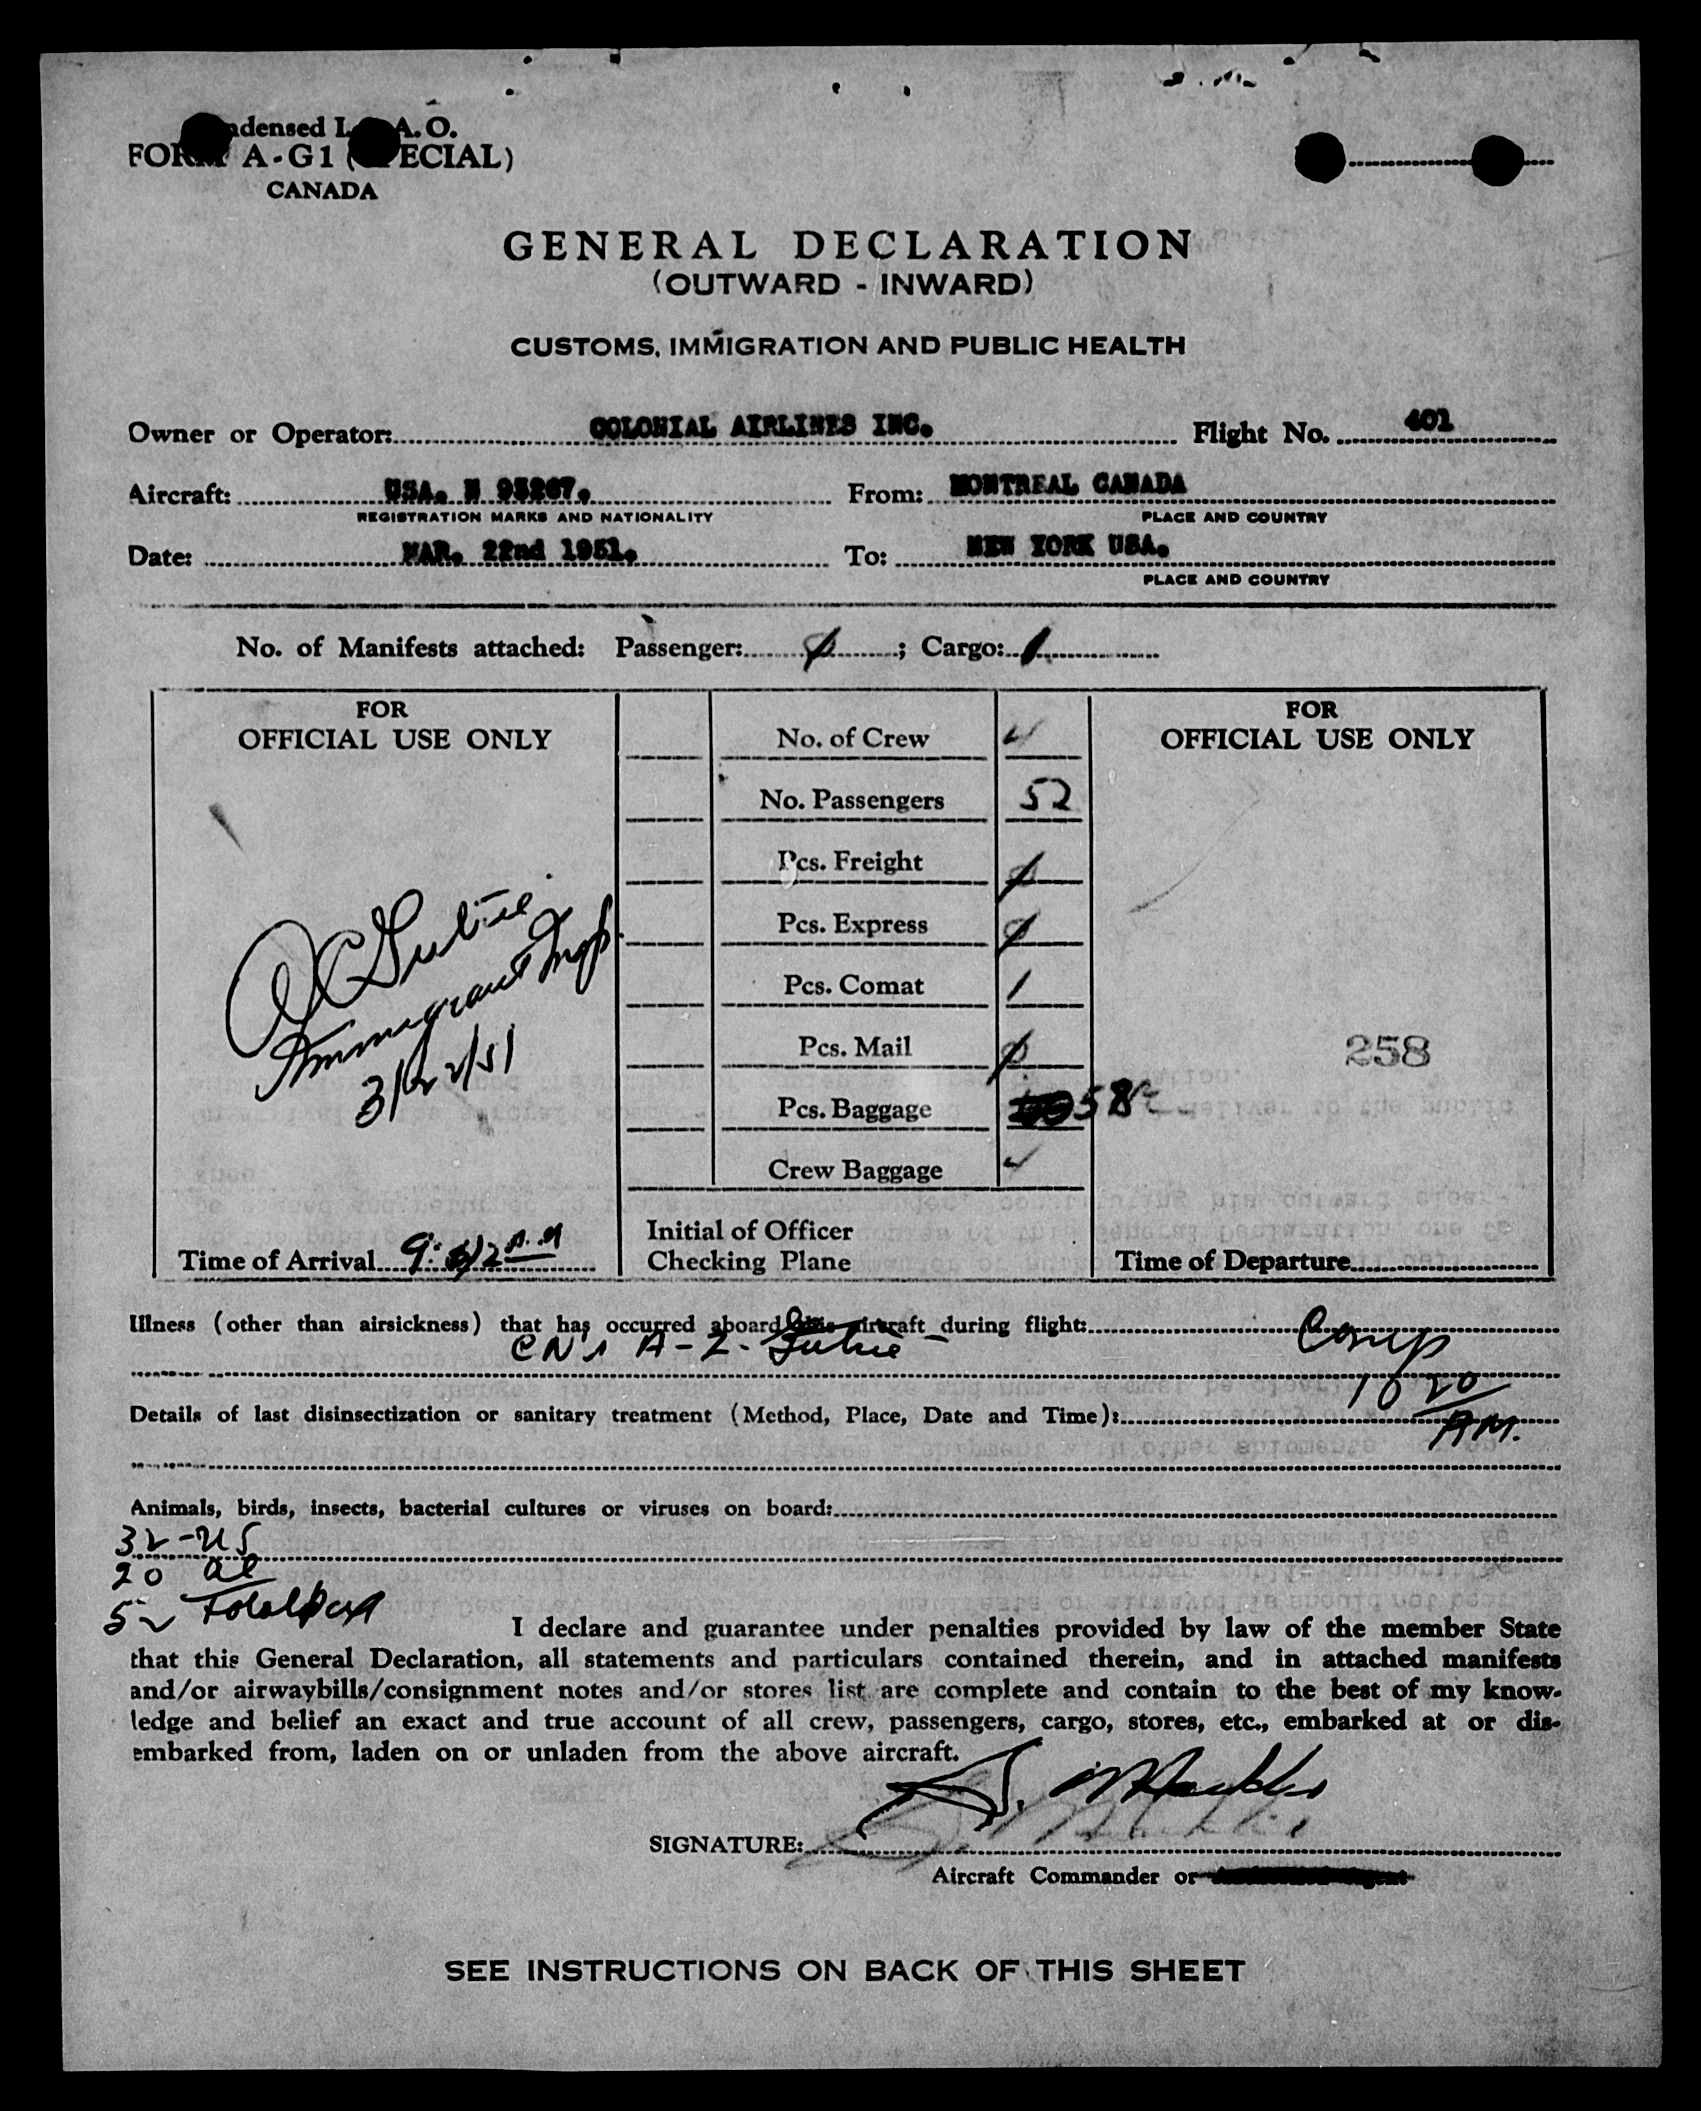 ndensed I. A. O.
FORM A-G1 ( ECIAL)
CANADA
GENERAL DECLARATION
(OUTWARD - INWARD)
CUSTOMS, IMMIGRATION AND PUBLIC HEALTH
Owner or Operator: COLONIAL AIRLINES INC. Flight No. 401
Aircraft: USA. N 95267. From: MONTREAL CANADA
REGISTRATION MARKS AND NATIONALITY PLACE AND COUNTRY
Date: MAR. 22nd 1951. To: NEW YORK USA.
PLACE AND COUNTRY
No. of Manifests attached: Passenger: ; Cargo: 1
FOR FOR
OFFICIAL USE ONLY OFFICIAL USE ONLY
No. of Crew 4
No. Passengers 52
Pcs. Freight
Pcs. Express
Pcs. Comat 1
Pcs. Mail
Pcs. Baggage 58
Crew Baggage
Immigrant Insp
3/22/51
258
Initial of Officer
Checking Plane
Time of Arrival 9: 42 A.M Time of Departure
Illness (other than airsickness) that has occurred aboard this aircraft during flight: Comp
10 20
AM.
Details of last disinsectization or sanitary treatment (Method, Place, Date and Time):
Animals, birds, insects, bacterial cultures or viruses on board:
32 - US
20 al
52 Total pass
I declare and guarantee under penalties provided by law of the member State
that this General Declaration, all statements and particulars contained therein, and in attached manifests
and/or airwaybills/consignment notes and/or stores list are complete and contain to the best of my know-
ledge and belief an exact and true account of all crew, passengers, cargo, stores, etc., embarked at or dis-
embarked from, laden on or unladen from the above aircraft.
SIGNATURE:
Aircraft Commander or
SEE INSTRUCTIONS ON BACK OF THIS SHEET